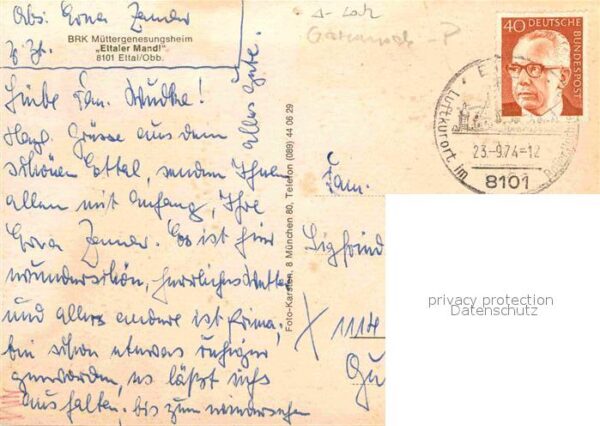 Abs: Erna Zander
z. Zt.
BRK Müttergenesungsheim
„Ettaler Mandl"
8101 Ettal/Obb.
Liebe Fam. Wudke!
Herzl. Grüsse aus dem
schönen Ettal, senden Ihnen
allen mit Anhang, Ihre
Erna Zander. Es ist hier
wunderschön, herrliches Wetter
und alles andere ist prima,
bin schon etwas ruhiger
geworden, es läßt sich
aushalten. bis zum wiedersehen
alles gute.
Foto-Karsten, 8 München 80, Telefon (089) 44 06 29
40 DEUTSCHE
BUNDESPOST
Luftkurort im
23.-9.74-12
8101
Fam.
Siegfried
X 1114
privacy protection
Datenschutz